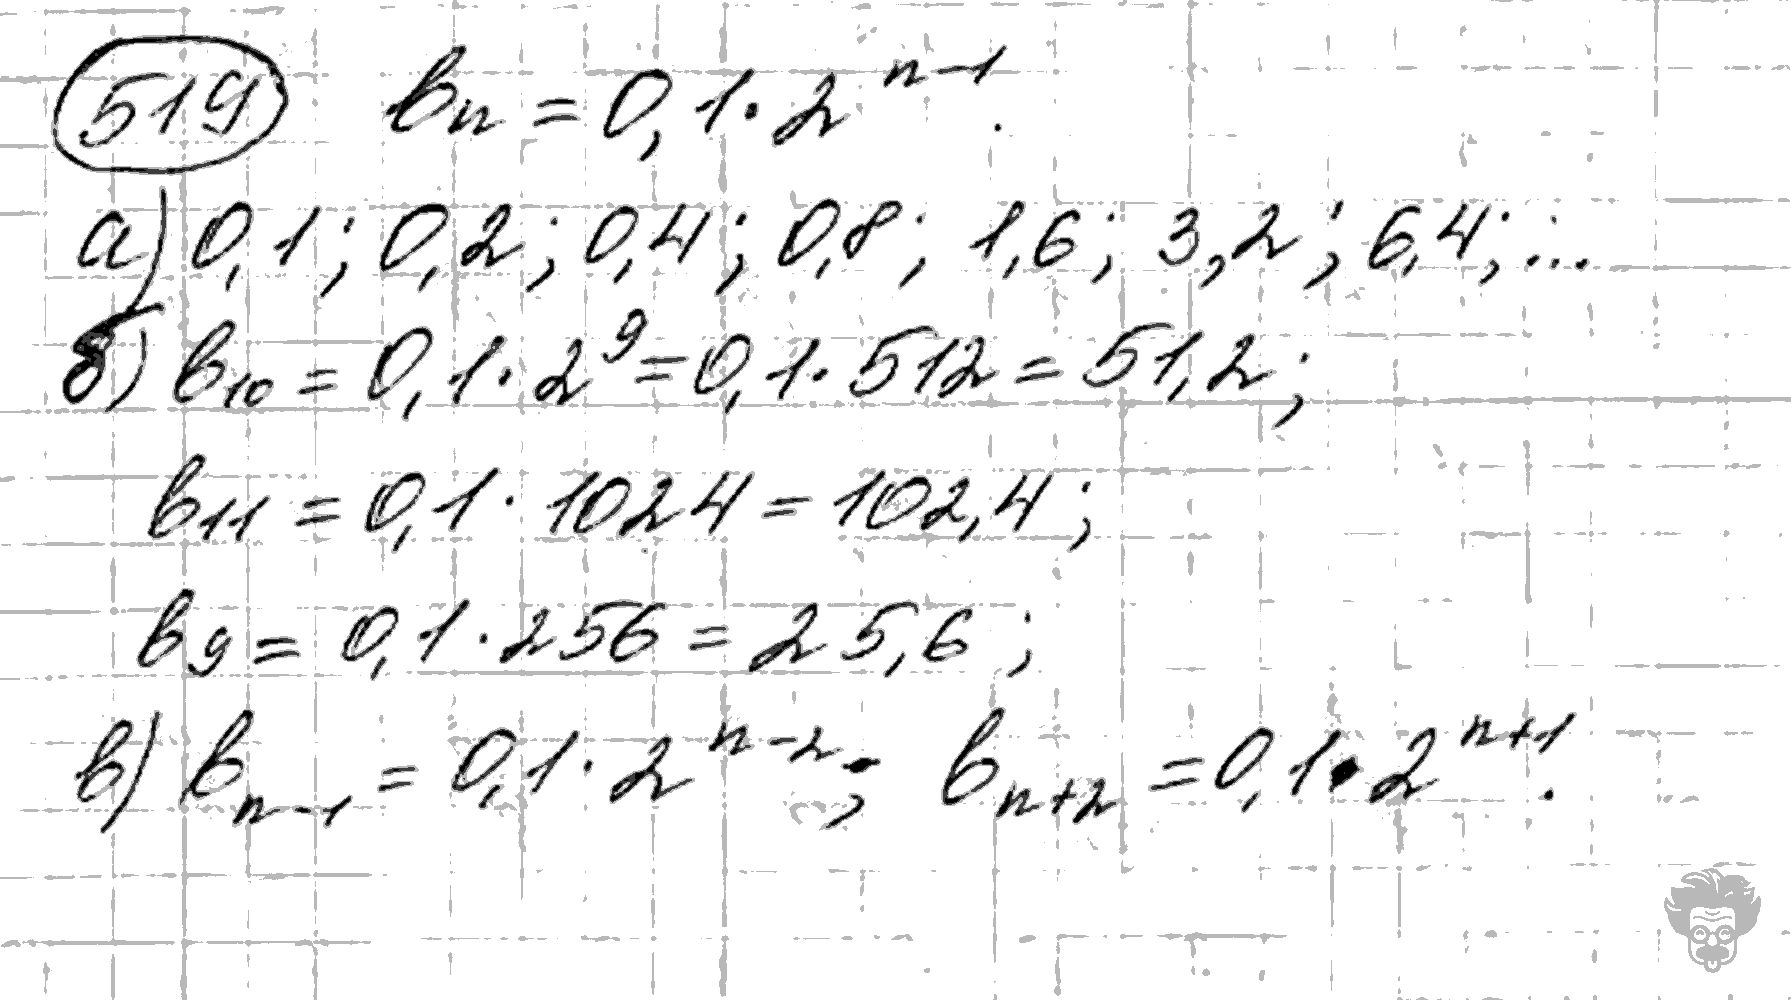 519 bₙ = 0,1·2ⁿ⁻¹.
а) 0,1; 0,2; 0,4; 0,8; 1,6; 3,2; 6,4; ...
б) b₁₀ = 0,1·2⁹ = 0,1·512 = 51,2;
b₁₁ = 0,1·1024 = 102,4;
b₉ = 0,1·256 = 25,6;
в) bₙ₋₁ = 0,1·2ⁿ⁻²; bₙ₊₂ = 0,1·2ⁿ⁺¹.